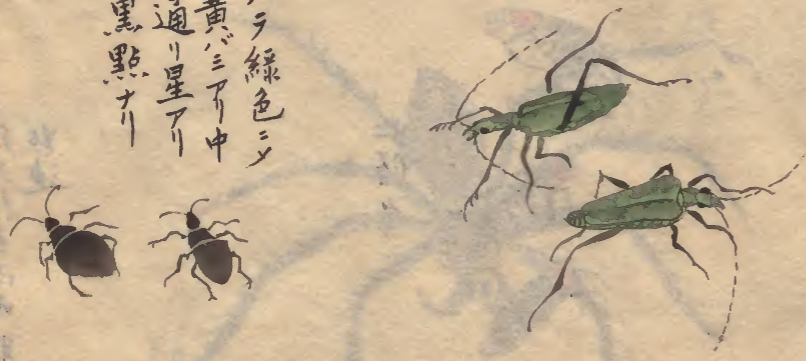 テ緑色ニ〆
黄バミアリ中
通リ星アリ
黒點ナリ